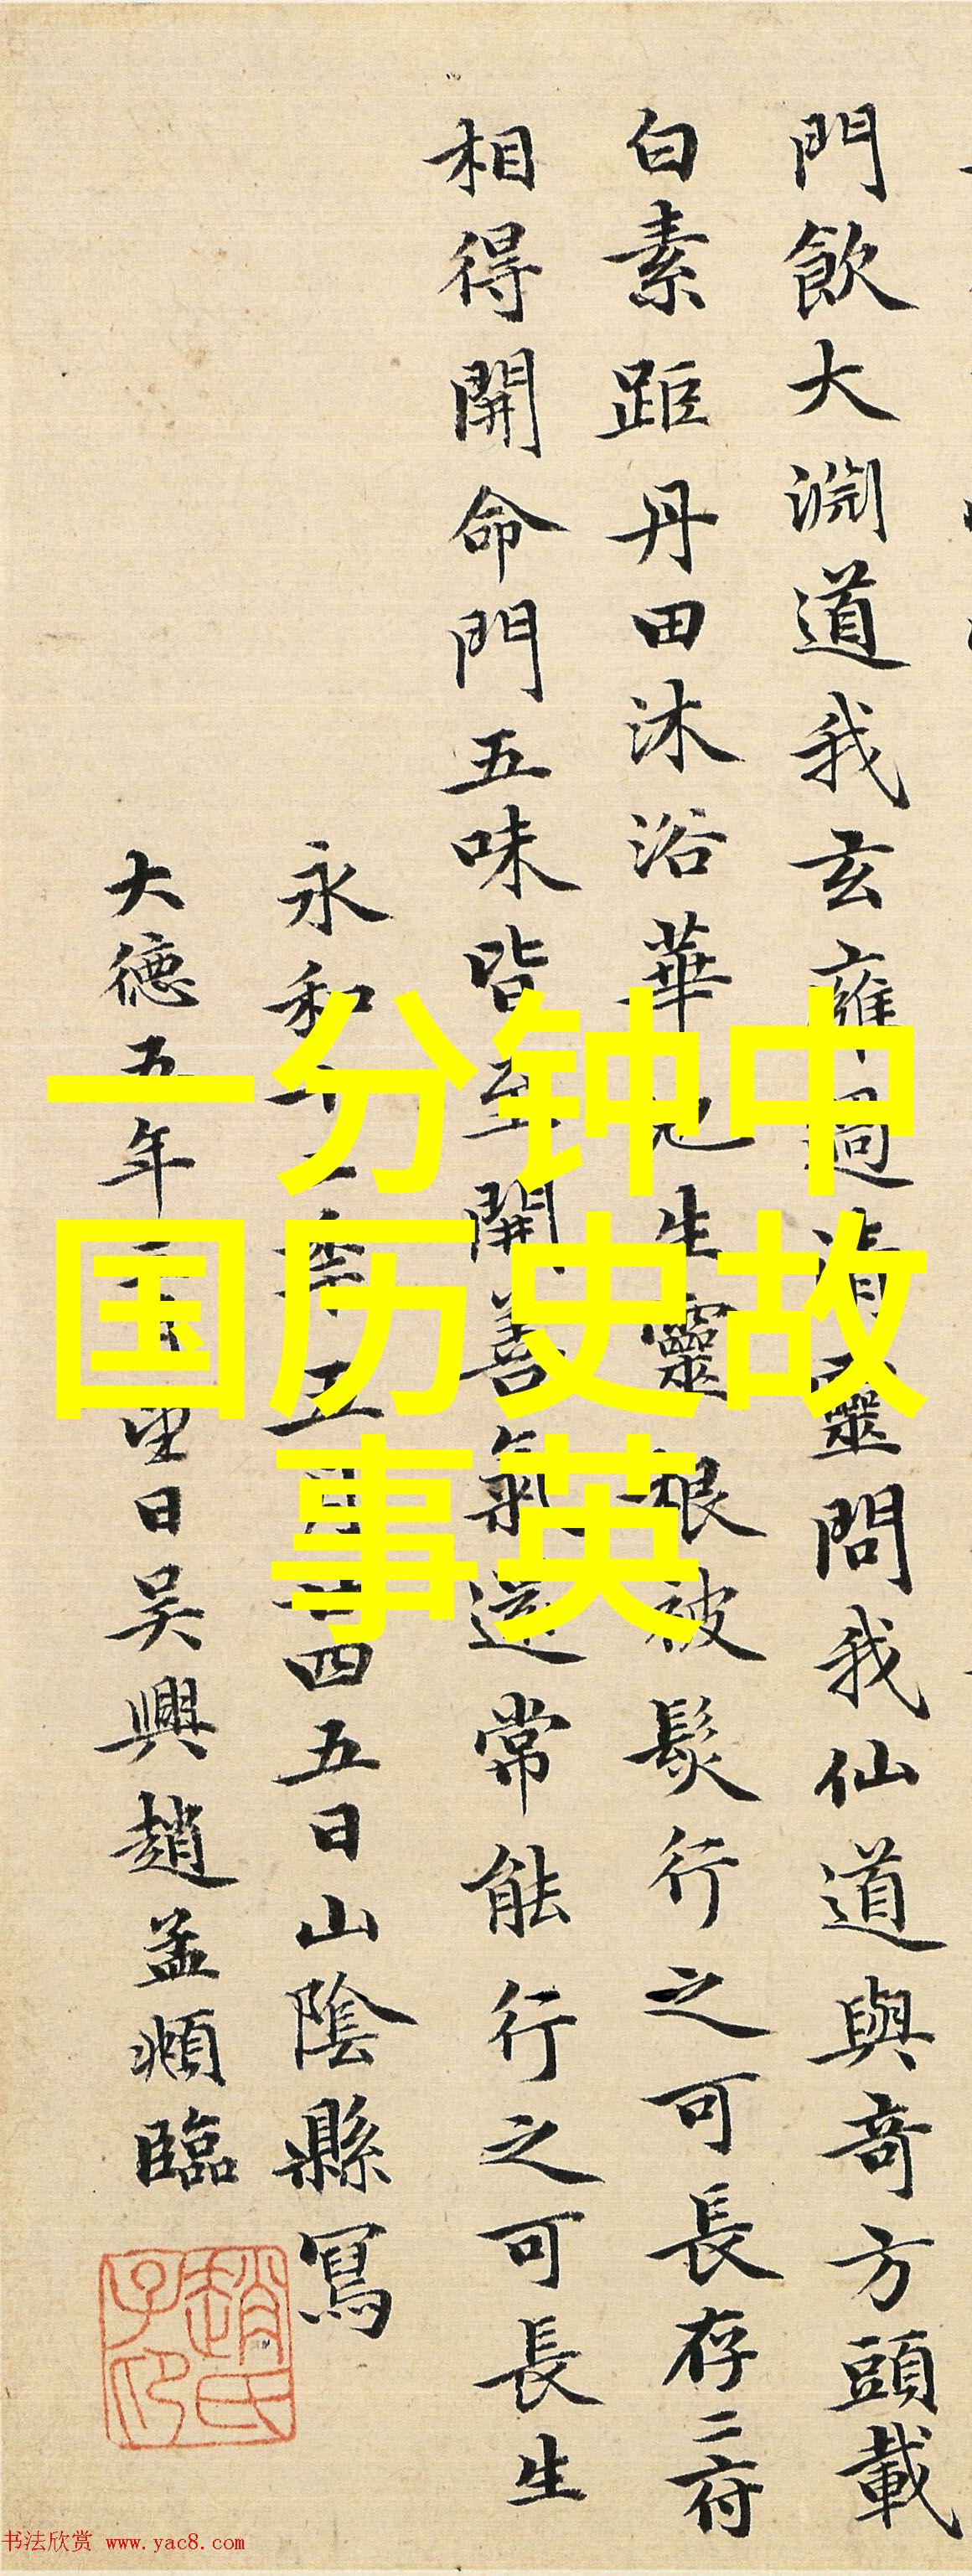 門飲大淵道我玄雍過清靈問我仙道與奇方頭載
白素距丹田沐浴華池生靈根被髮行之可長存二府
相得開命門五味皆至開善氣還常能行之可長生
永和十二年五月廿四五日山陰縣寫
大德五年二月望日吳興趙孟頫臨
趙氏子印
一分钟中
国历史故
事英
书法欣赏 www.yac8.com